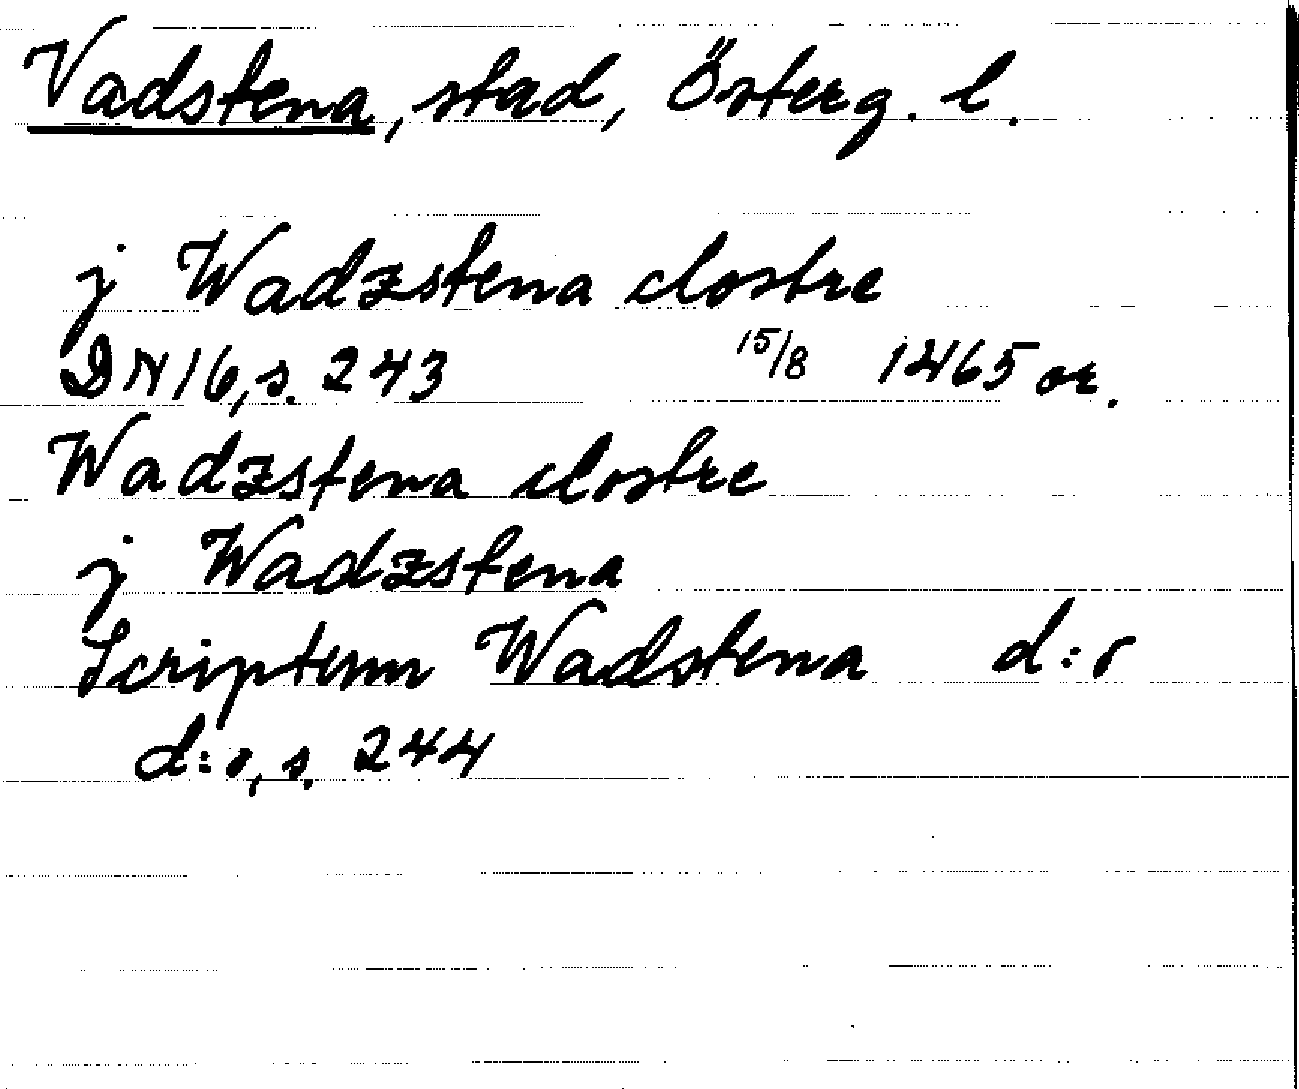 Vadstena, stad, Österg. l.
j Wadzstena clostre
DN 16, s. 243 15/8 1465 or.
Wadzstena clostre
j Wadzstena
Scriptum Wadstena d:o
d:o, s. 244